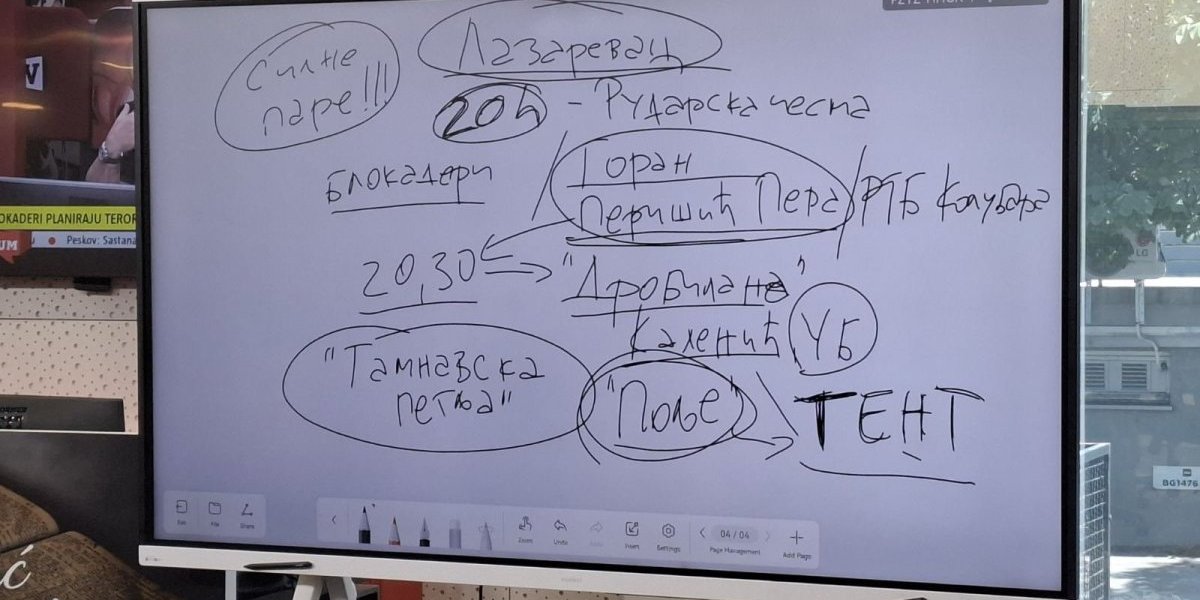 Силне
паре!!!
Лазаревац
20h - Рударска чесма
Блокадери
Горан
Перишић Пера
РТБ Колубара
20,30
"Дробилана"
Каленић
УБ
"Тамнавска
петља"
"Поље"
ТЕНТ
OKADERI PLANIRAJU TEROR
UM
Peskov: Sastana
LG
BG1476
Exit
File
Share
Zoom
Undo
Insert
Settings
04 / 04
Page Management
Add Page
ć